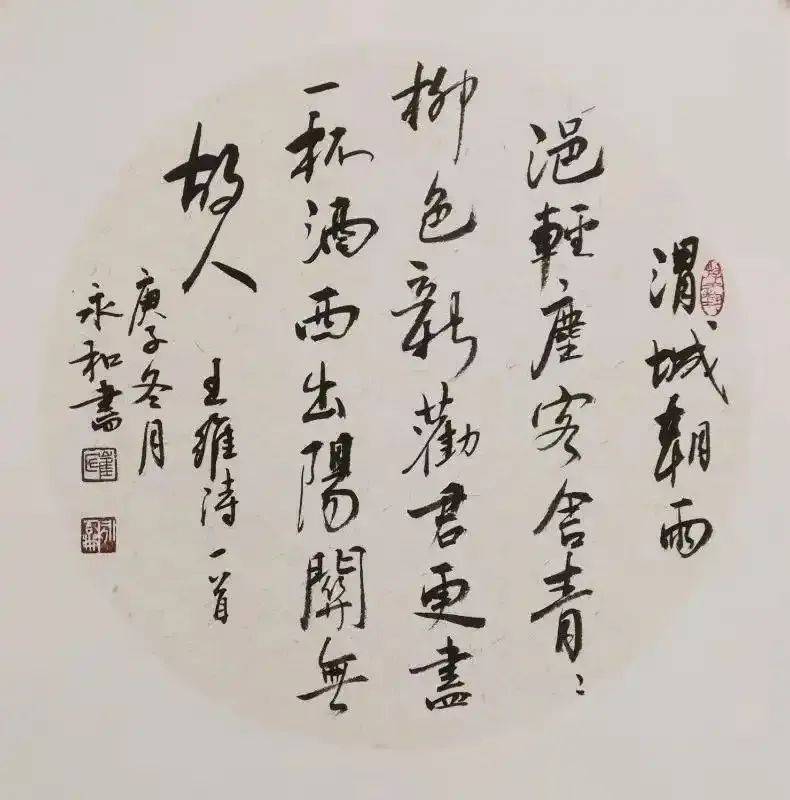 渭城朝雨
浥輕塵客舍青〻
柳色新勸君更盡
一杯酒西出陽關無
故人
王維詩一首
庚子冬月
永和書